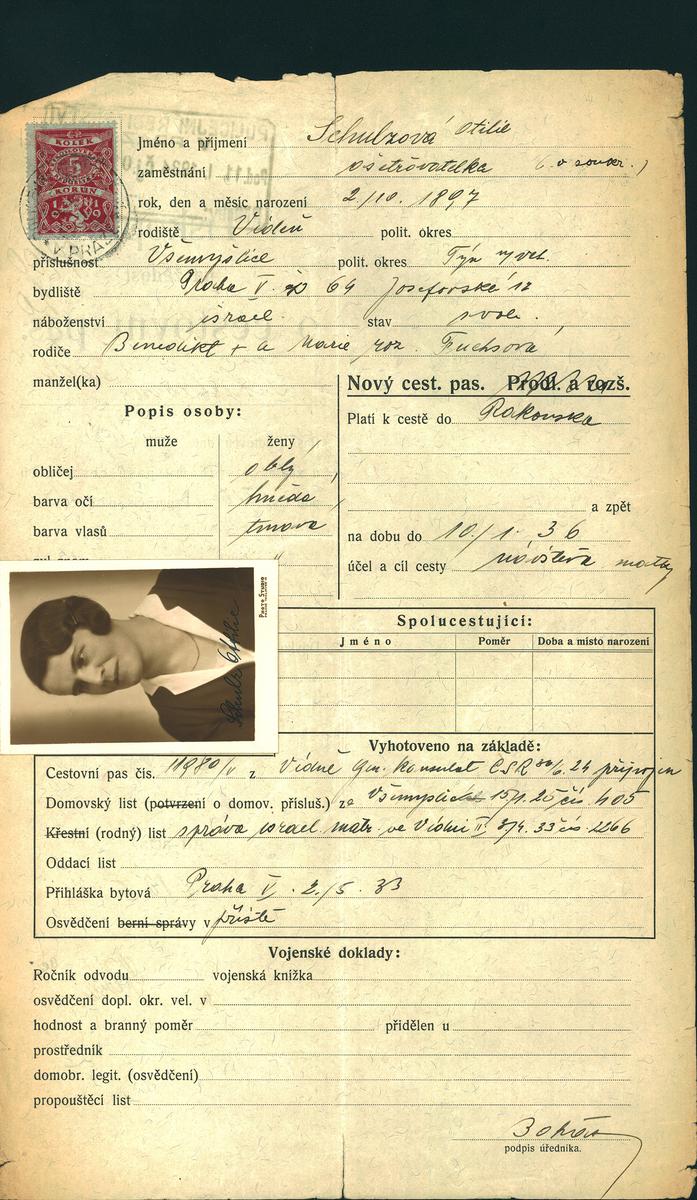 KOLEK
5
KORUN
1919
V PRAZE
Jméno a příjmení Schulzová Otilie
zaměstnání ošetřovatelka
rok, den a měsíc narození 2./10. 1897
rodiště Vídeň polit. okres
příslušnost Všemyslice polit. okres Týn n/vlt.
bydliště Praha V. čp 64 Josefovská 12
náboženství israel. stav svob.
rodiče Benedikt + a Marie roz. Fuchsová
manžel(ka)
Nový cest. pas. Prodl. a rozš.
Popis osoby:
Platí k cestě do Rakouska
muže ženy
obličej oblý
barva očí hnědá
a zpět
barva vlasů tmavá
na dobu do 10./1. 36
účel a cíl cesty návštěva matky
Photo Studio
Schulz Ottilie
Spolucestující:
Jméno Poměr Doba a místo narození
Vyhotoveno na základě:
Cestovní pas čís. 11980/V z Vídně Gen. Konsulat ČSR 24 připojen
Domovský list (potvrzení o domov. přísluš.) ze Všemyslic 15/1. 25 čís. 405
Křestní (rodný) list správa israel. matr. ve Vídni II. 3/4. 33 čís. 2266
Oddací list
Přihláška bytová Praha V. 2./5. 33
Osvědčení berní správy v příště
Vojenské doklady:
Ročník odvodu vojenská knížka
osvědčení dopl. okr. vel. v
hodnost a branný poměr přidělen u
prostředník
domobr. legit. (osvědčení)
propouštěcí list
podpis úředníka.